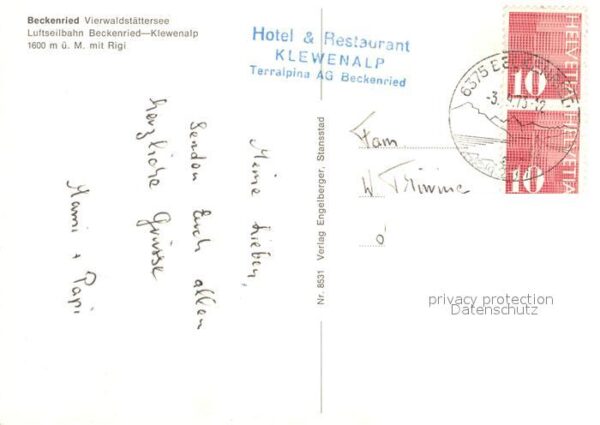 Beckenried Vierwaldstättersee
Luftseilbahn Beckenried—Klewenalp
1600 m ü. M. mit Rigi
Hotel & Restaurant
KLEWENALP
Terralpina AG Beckenried
HELVETIA
10
HELVETIA
10
6375 BECKENRIED
73-12
Meine Lieben,
Senden Euch allen
herzliche Grüsse
Mami + Papi
Nr. 8531 Verlag Engelberger, Stansstad
Fam.
W
privacy protection
Datenschutz